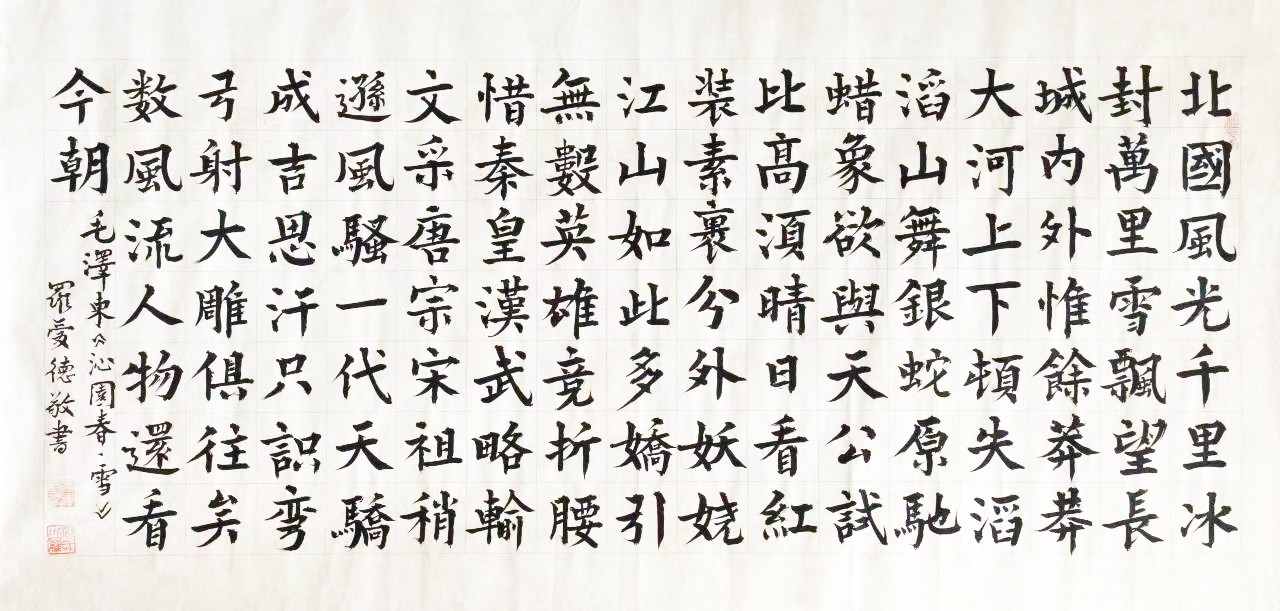 北國風光千里冰
封萬里雪飄望長
城内外惟餘莽莽
大河上下頓失滔
滔山舞銀蛇原馳
蜡象欲與天公試
比高須晴日看紅
装素裹分外妖娆
江山如此多嬌引
無數英雄竞折腰
惜秦皇漢武略輸
文采唐宗宋祖稍
遜風騷一代天驕
成吉思汗只識弯
弓射大雕俱往矣
数風流人物還看
今朝
毛澤東《沁園春·雪》
羅愛德敬書